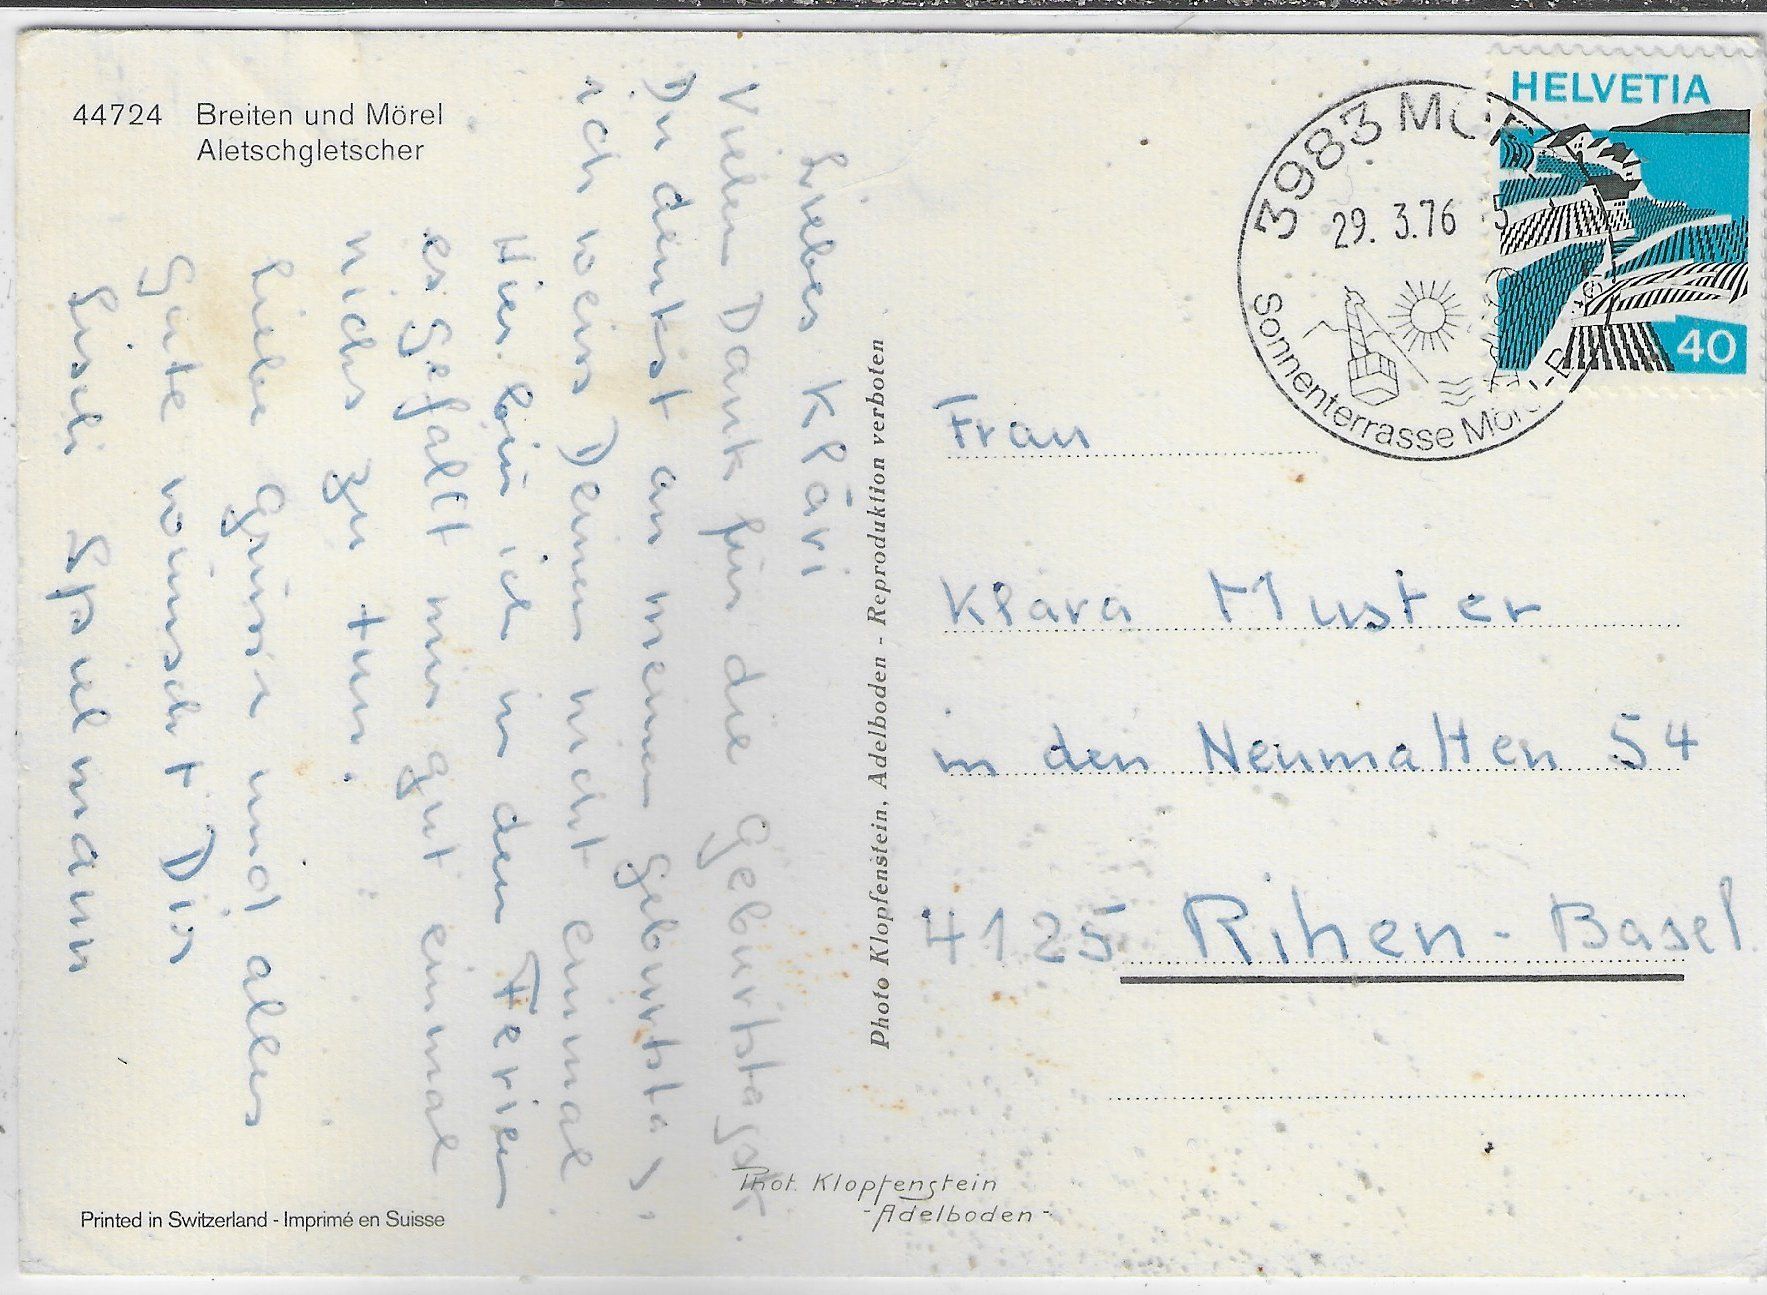 44724 Breiten und Mörel
Aletschgletscher
Liebes Kläri
Vielen Dank für die Geburtstagsk.
Du denkst an meinen Geburtstag,
ich weiss Deinen nicht einmal.
Hier bin ich in den Ferien
es gefällt mir gut einmal
nichts zu tun.
Liebe Grüsse und alles
Gute wünscht Dir
Liseli Spielmann
Printed in Switzerland - Imprimé en Suisse
Photo Klopfenstein, Adelboden - Reproduktion verboten
Phot. Klopfenstein
- Adelboden -
HELVETIA
40
3983 MÖREL
29. 3.76
Sonnenterrasse Mörel-
Frau
Klara Muster
in den Neumatten 54
4125 Rihen - Basel